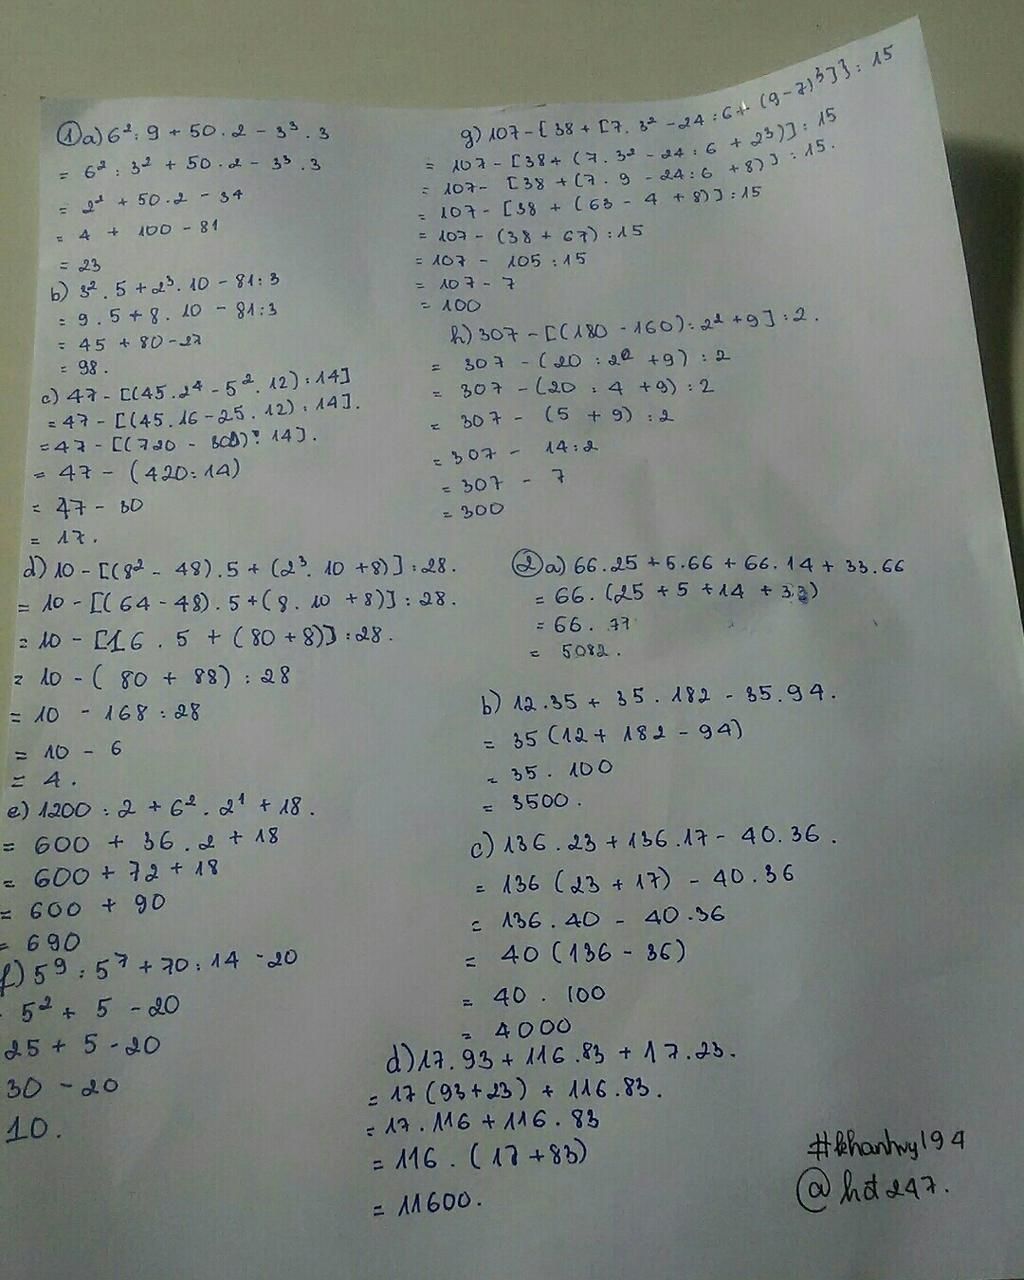 ① a) 6² : 9 + 50 . 2 - 3³ . 3
= 6² : 3² + 50 . 2 - 3³ . 3
= 2² + 50 . 2 - 3⁴
= 4 + 100 - 81
= 23
b) 3² . 5 + 2³ . 10 - 81 : 3
= 9 . 5 + 8 . 10 - 81 : 3
= 45 + 80 - 27
= 98 .
c) 47 - [(45 . 2⁴ - 5² . 12) : 14]
= 47 - [(45 . 16 - 25 . 12) : 14] .
= 47 - [(720 - 300) : 14] .
= 47 - (420 : 14)
= 47 - 30
= 17 .
d) 10 - [(8² - 48) . 5 + (2³ . 10 + 8)] : 28 .
= 10 - [(64 - 48) . 5 + (8 . 10 + 8)] : 28 .
= 10 - [16 . 5 + (80 + 8)] : 28 .
= 10 - ( 80 + 88) : 28
= 10 - 168 : 28
= 10 - 6
= 4 .
e) 1200 : 2 + 6² . 2¹ + 18 .
= 600 + 36 . 2 + 18
= 600 + 72 + 18
= 600 + 90
= 690
f) 5⁹ : 5⁷ + 70 : 14 - 20
5² + 5 - 20
25 + 5 - 20
30 - 20
10 .
g) 107 - { 38 + [7 . 3² - 24 : 6 + (9 - 7)³]} : 15
= 107 - [38 + (7 . 3² - 24 : 6 + 2³)] : 15
= 107 - [38 + (7 . 9 - 24 : 6 + 8)] : 15 .
= 107 - [38 + (63 - 4 + 8)] : 15
= 107 - (38 + 67) : 15
= 107 - 105 : 15
= 107 - 7
= 100
h) 307 - [(180 - 160) : 2² + 9] : 2 .
= 307 - (20 : 2² + 9) : 2
= 307 - (20 : 4 + 9) : 2
= 307 - (5 + 9) : 2
= 307 - 14 : 2
= 307 - 7
= 300
② a) 66 . 25 + 5 . 66 + 66 . 14 + 33 . 66
= 66 . (25 + 5 + 14 + 33)
= 66 . 77
= 5082 .
b) 12 . 35 + 35 . 182 - 35 . 94 .
= 35 (12 + 182 - 94)
= 35 . 100
= 3500 .
c) 136 . 23 + 136 . 17 - 40 . 36 .
= 136 (23 + 17) - 40 . 36
= 136 . 40 - 40 . 36
= 40 (136 - 36)
= 40 . 100
= 4000
d) 17 . 93 + 116 . 83 + 17 . 23 .
= 17 (93 + 23) + 116 . 83 .
= 17 . 116 + 116 . 83
= 116 . (17 + 83)
= 11600 .
#khanhvy194
@hđ247.